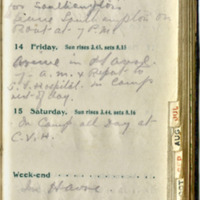 for Southampton
Leave Southampton on
Boat at 7 P.M.
14 Friday. Sun rises 3.45, sets 8.15
Arrive in Havre
7 a.m. & Report to
Hospital in Camp
rest of day.
15 Saturday. Sun rises 3.44, sets 8.16
In Camp all Day at
C.V.H.
Week-end
In Havre
AUG
SEP
OCT